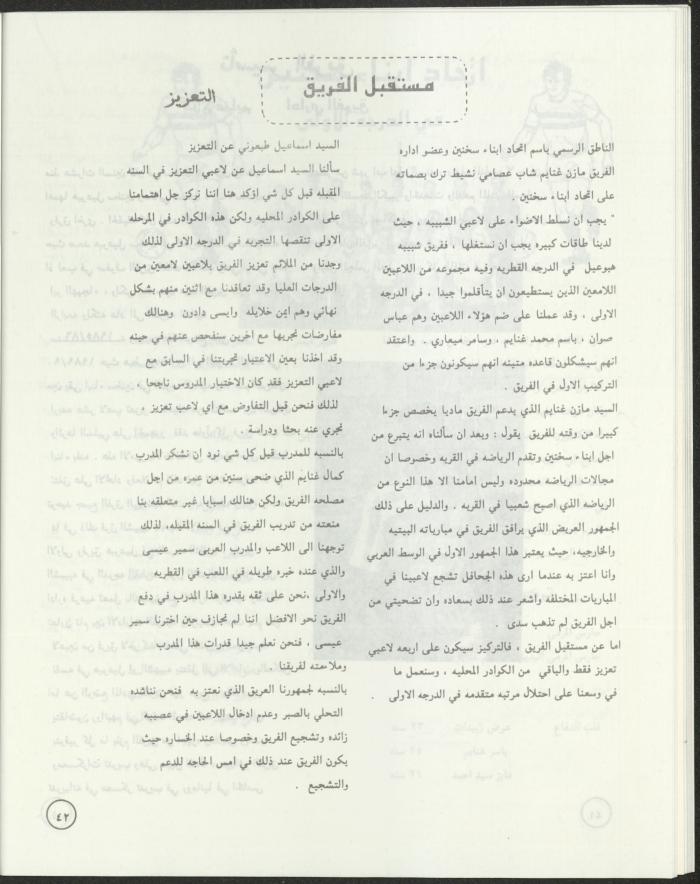 مستقبل الفريق
الناطق الرسمي باسم اتحاد ابناء سخنين وعضو اداره
الفريق مازن غنايم شاب عصامي نشيط ترك بصماته
على اتحاد ابناء سخنين .
" يجب ان نسلط الاضواء على لاعبي الشبيبه ، حيث
لدينا طاقات كبيره يجب ان نستغلها ، ففريق شبيبه
هبوعيل في الدرجه القطريه وفيه مجموعه من اللاعبين
اللامعين الذين يستطيعون ان يتأقلموا جيدا ، في الدرجه
الاولى ، وقد عملنا على ضم هؤلاء اللاعبين وهم عباس
صوان ، باسم محمد غنايم ، وسامر ميعاري . واعتقد
انهم سيشكلون قاعده متينه انهم سيكونون جزءا من
التركيب الاول في الفريق .
السيد مازن غنايم الذي يدعم الفريق ماديا يخصص جزءا
كبيرا من وقته للفريق يقول : وبعد ان سألناه انه يتبرع من
اجل ابناء سخنين وتقدم الرياضه في القريه وخصوصا ان
مجالات الرياضه محدوده وليس امامنا الا هذا النوع من
الرياضه الذي اصبح شعبيا في القريه . والدليل على ذلك
الجمهور العريض الذي يرافق الفريق في مبارياته البيتيه
والخارجيه، حيث يعتبر هذا الجمهور الاول في الوسط العربي
وانا اعتز به عندما ارى هذه الجحافل تشجع لاعبينا في
المباريات المختلفه واشعر عند ذلك بسعاده وان تضحيتي من
اجل الفريق لم تذهب سدى .
اما عن مستقبل الفريق ، فالتركيز سيكون على اربعه لاعبي
تعزيز فقط والباقي من الكوادر المحليه ، وسنعمل ما
في وسعنا على احتلال مرتبه متقدمه في الدرجه الاولى .
التعزيز
السيد اسماعيل طبعوني عن التعزيز
سألنا السيد اسماعيل عن لاعبي التعزيز في السنه
المقبله قبل كل شي اؤكد هنا اننا نركز جل اهتمامنا
على الكوادر المحليه ولكن هذه الكوادر في المرحله
الاولى تنقصها التجربه في الدرجه الاولى لذلك
وجدنا من الملائم تعزيز الفريق بلاعبين لامعين من
الدرجات العليا وقد تعاقدنا مع اثنين منهم بشكل
نهائي وهم ايمن خلايله وايسي دادون وهنالك
مفارضات نجريها مع اخرين سنفحص عنهم في حينه
وقد اخذنا بعين الاعتبار تجربتنا في السابق مع
لاعبي التعزيز فقد كان الاختيار المدروس ناجحا ،
لذلك فنحن قبل التفاوض مع اي لاعب تعزيز ،
نجري عنه بحثا ودراسة .
بالنسبه للمدرب قبل كل شي نود ان نشكر المدرب
كمال غنايم الذي ضحى سنين من عمره من اجل
مصلحه الفريق ولكن هنالك اسبابا غير متعلقه بنا
منعته من تدريب الفريق في السنه المقبله، لذلك
توجهنا الى اللاعب والمدرب العربى سمير عيسى
والذي عنده خبره طويله في اللعب في القطريه
والاولى ،نحن على ثقه بقدره هذا المدرب في دفع
الفريق نحو الافضل اننا لم نجازف حين اخترنا سمير
عيسى ، فنحن نعلم جيدا قدرات هذا المدرب
وملاءمته لفريقنا .
بالنسبه لجمهورنا العريق الذي نعتز به فنحن نناشده
التحلي بالصبر وعدم ادخال اللاعبين في عصبيه
زائده وتشجيع الفريق وخصوصا عند الخساره حيث
يكون الفريق عند ذلك في امس الحاجه للدعم
والتشجيع .
٤٢